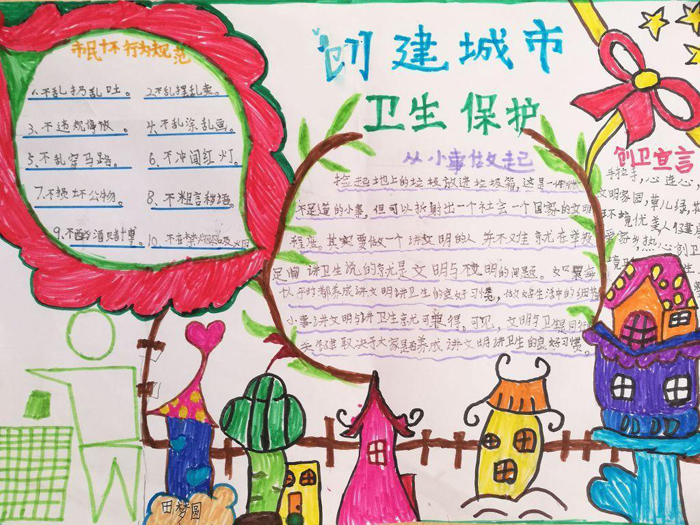 市民十不行为规范
1.不乱扔乱吐。
2.不乱摆乱卖。
3.不违规停放。
4.不乱涂乱画。
5.不乱穿马路。
6.不冲闯红灯。
7.不损坏公物。
8.不粗言秽语。
9.不酗酒赌博。
10.不在禁
创建城市
卫生保护
从小事做起
捡起地上的垃圾放进垃圾箱,这是一件
不足道的小事,但可以折射出一个社会一个国家的文明
程度。其实要做一个讲文明的人并不难
讲卫生说的就是文明与不文明的问题。
从平时都养成讲文明讲卫生的良好习惯,做好生活中的
小事讲文明与讲卫生就可兼得,可见,文明与卫生
取决于大家是否养成讲文明讲卫生的良好习惯。
创卫宣言
手拉手,心连心,
文明家园
环境优美人
热心创卫
田梦圆